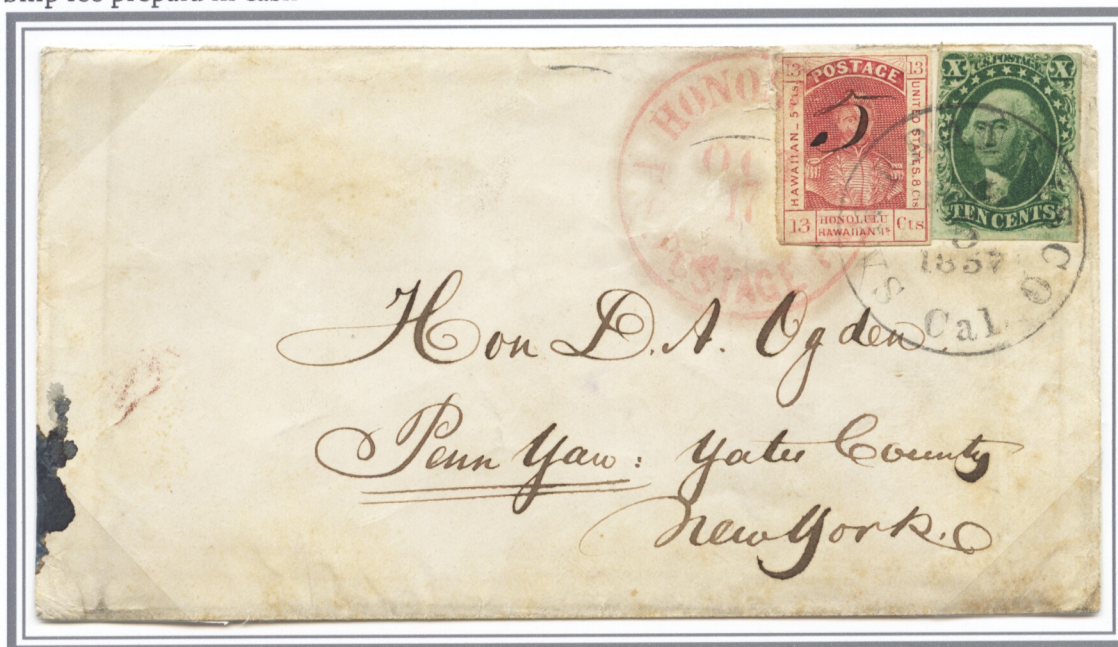 HONO
OC
17
POSTAGE P
13 POSTAGE 13
HAWAIIAN_5 Cts.
UNITED STATES.8 Cts
5
13 HONOLULU Cts
HAWAIIAN Is
X U.S.POSTAGE X
TEN CENTS
SAN
CISCO
1857
Cal
Hon D. A. Ogden
Penn Yan: Yates County
New York.